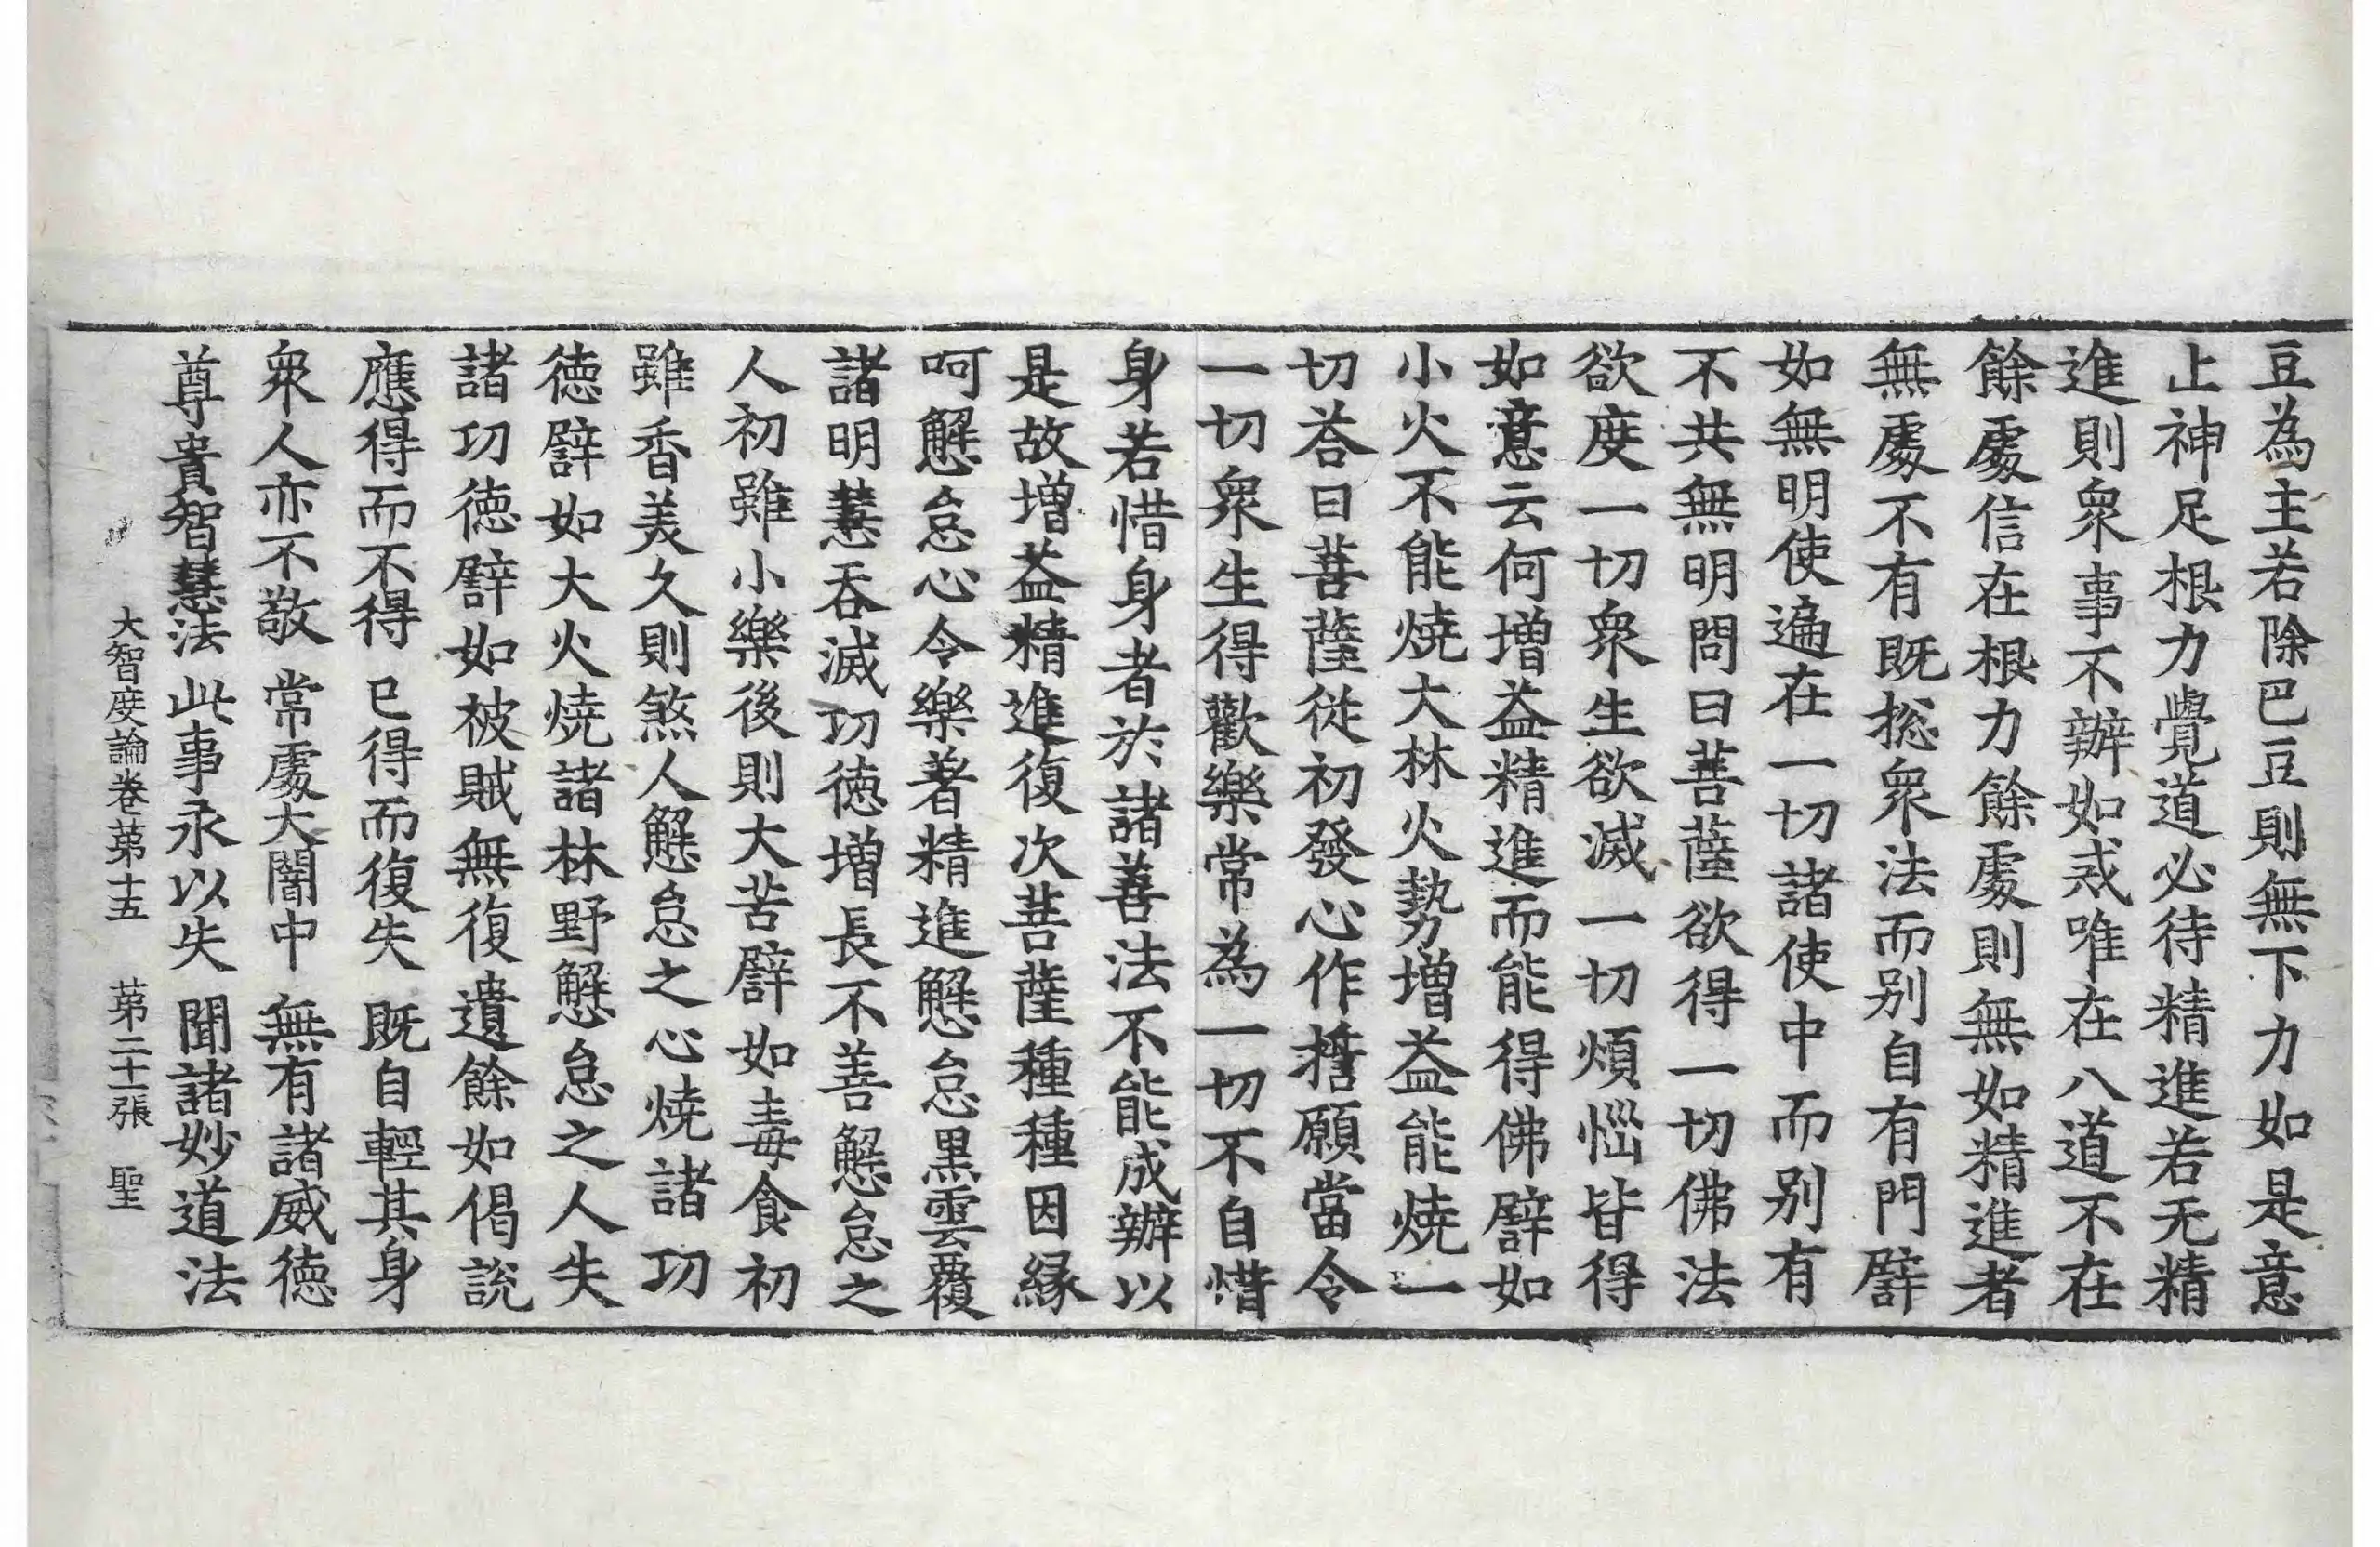 豆為主若除巴豆則無下力如是意
止神足根力覺道必待精進若无精
進則衆事不辦如戒唯在八道不在
餘處信在根力餘處則無如精進者
無處不有既捴衆法而别自有門譬
如無明使遍在一切諸使中而别有
不共無明問曰菩薩欲得一切佛法
欲度一切衆生欲滅一切煩惱皆得
如意云何增益精進而能得佛譬如
小火不能燒大林火勢增益能燒一
切荅曰菩薩從初發心作擔願當令
一切衆生得歡樂常為一切不自惜
身若惜身者於諸善法不能成辦以
是故增益精進復次菩薩種種因緣
呵懈怠心令樂著精進懈怠黑雲覆
諸明慧吞滅功德增長不善懈怠之
人初雖小樂後則大苦譬如毒食初
雖香美久則煞人懈怠之心燒諸功
德譬如大火燒諸林野懈怠之人失
諸功德譬如被賊無復遺餘如偈說
應得而不得 已得而復失 既自輕其身
衆人亦不敬 常處大闇中 無有諸威德
尊貴智慧法 此事永以失 聞諸妙道法
大智度論卷苐十五 苐二十一張 聖